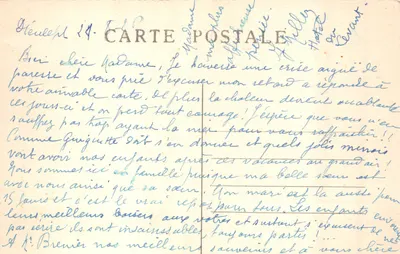 CARTE POSTALE
Bien chère Madame, Je traverse une crise aiguë de
paresse et vous prie d'excuser mon retard a répondre à
votre aimable carte. De plus la chaleur devient accablante
ces jours-ci et on perd tout courage. J'espère que vous n'en
souffrez pas trop ayant la mer pour vous rafraîchir !!
Comme Guiguitte doit s'en donner et quels jolis minois
vont avoir nos enfants après ces vacances au grand air !
Nous sommes ici en famille puisque ma belle sœur est
avec nous ainsi que sa sœur. Mon mari est là aussi pour
15 jours et c'est le vrai repos pour lui. Les enfants envoient
leurs meilleurs baisers aux vôtres et surtout s'excusent de ne
pas écrire ils sont insaisissables toujours partis !...
A Mr Brenier nos meilleurs souvenirs et à vous chère
Madame
mes plus
affectueuses
pensées
Hôtel
du
Levant